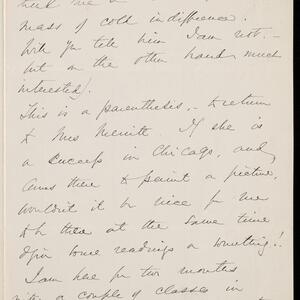 mass of cold indifference.
Will you tell him I am not. –
but on the other hand much
interested).
This is a parenthesis, – to return
to Mrs Merritt. If she is
a success in Chicago, and
comes there to paint a picture,
wouldn't it be nice for me
to be there at the same time
& join some readings or something!!
I am here for two months
a couple of classes in